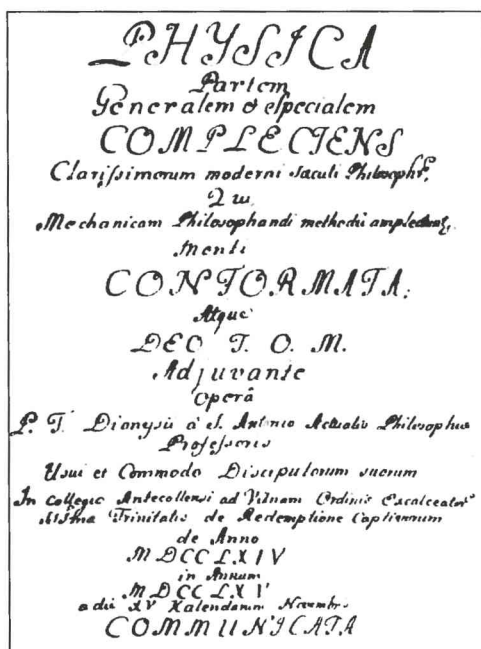 PHYSICA
Partem
Generalem & specialem
COMPLECTENS
Clarissimorum moderni sæculi Philosophr.
Qui
Mechanicam Philosophandi methodū amplectunt,
menti
CONFORMATA;
Atque
DEO T. O. M.
Adjuvante
Operâ
P. F. Dionysii à S. Antonio Actualis Philosophiæ
Professoris
Usui et Commodo Discipulorum suorum
In collegio Antecollensi ad Vilnam Ordinis Excalceator
SSSmæ Trinitatis de Redemptione Captivorum
de Anno
MDCCLXIV
in Annum
MDCCLXV
a die XV Kalendarum Novembr.
COMMUNICATA